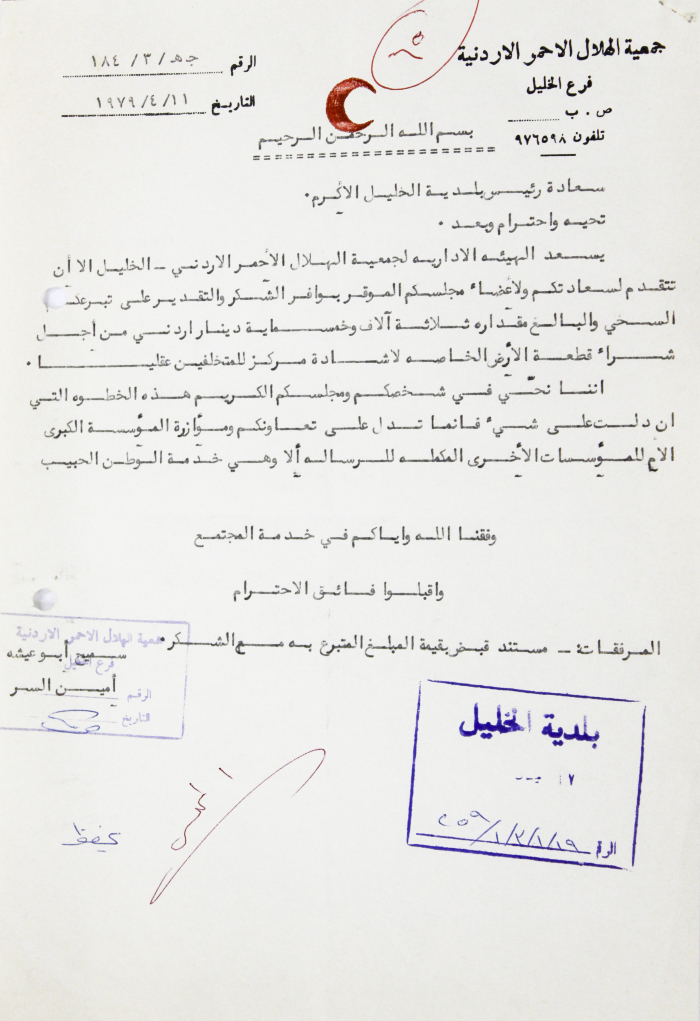 جمعية الهلال الاحمر الاردنية
فرع الخليل
ص . ب
تلفون ٩٧٦٥٩٨
الرقم جـهـ / ٣ / ١٨٤
التاريخ ١٩٧٩/٤/١١
بسم الله الرحمن الرحيم
سعادة رئيس بلدية الخليل الأكرم.
تحيه واحترام وبعد .
يسعد الهيئه الاداريه لجمعية الهلال الأحمر الاردني - الخليل الا أن
تتقدم لسعادتكم ولأعضاء مجلسكم الموقر بوافر الشكر والتقدير على تبرعكم
السخي والبالغ مقداره ثلاثة آلاف وخمسماية دينار اردني من أجل
شراء قطعة الأرض الخاصه لاشادة مركز للمتخلفين عقليا .
اننا نحيّي في شخصكم ومجلسكم الكريم هذه الخطوه التي
ان دلت على شيء فانما تدل على تعاونكم ومؤازرة المؤسسة الكبرى
الأم للمؤسسات الأخرى المكمله للرساله ألا وهي خدمة الوطن الحبيب
وفقنا الله واياكم في خدمة المجتمع
واقبلوا فائق الاحترام
المرفقات: - مستند قبض بقيمة المبلغ المتبرع به مع الشكر.
جمعية الهلال الاحمر الاردنية
فرع الخليل
سميح أبو عيشه
أمين السر
الرقم
التاريخ
بلدية الخليل
١٧
الرقم ٢٥٩/١/٣/١/١٩
يحفظ